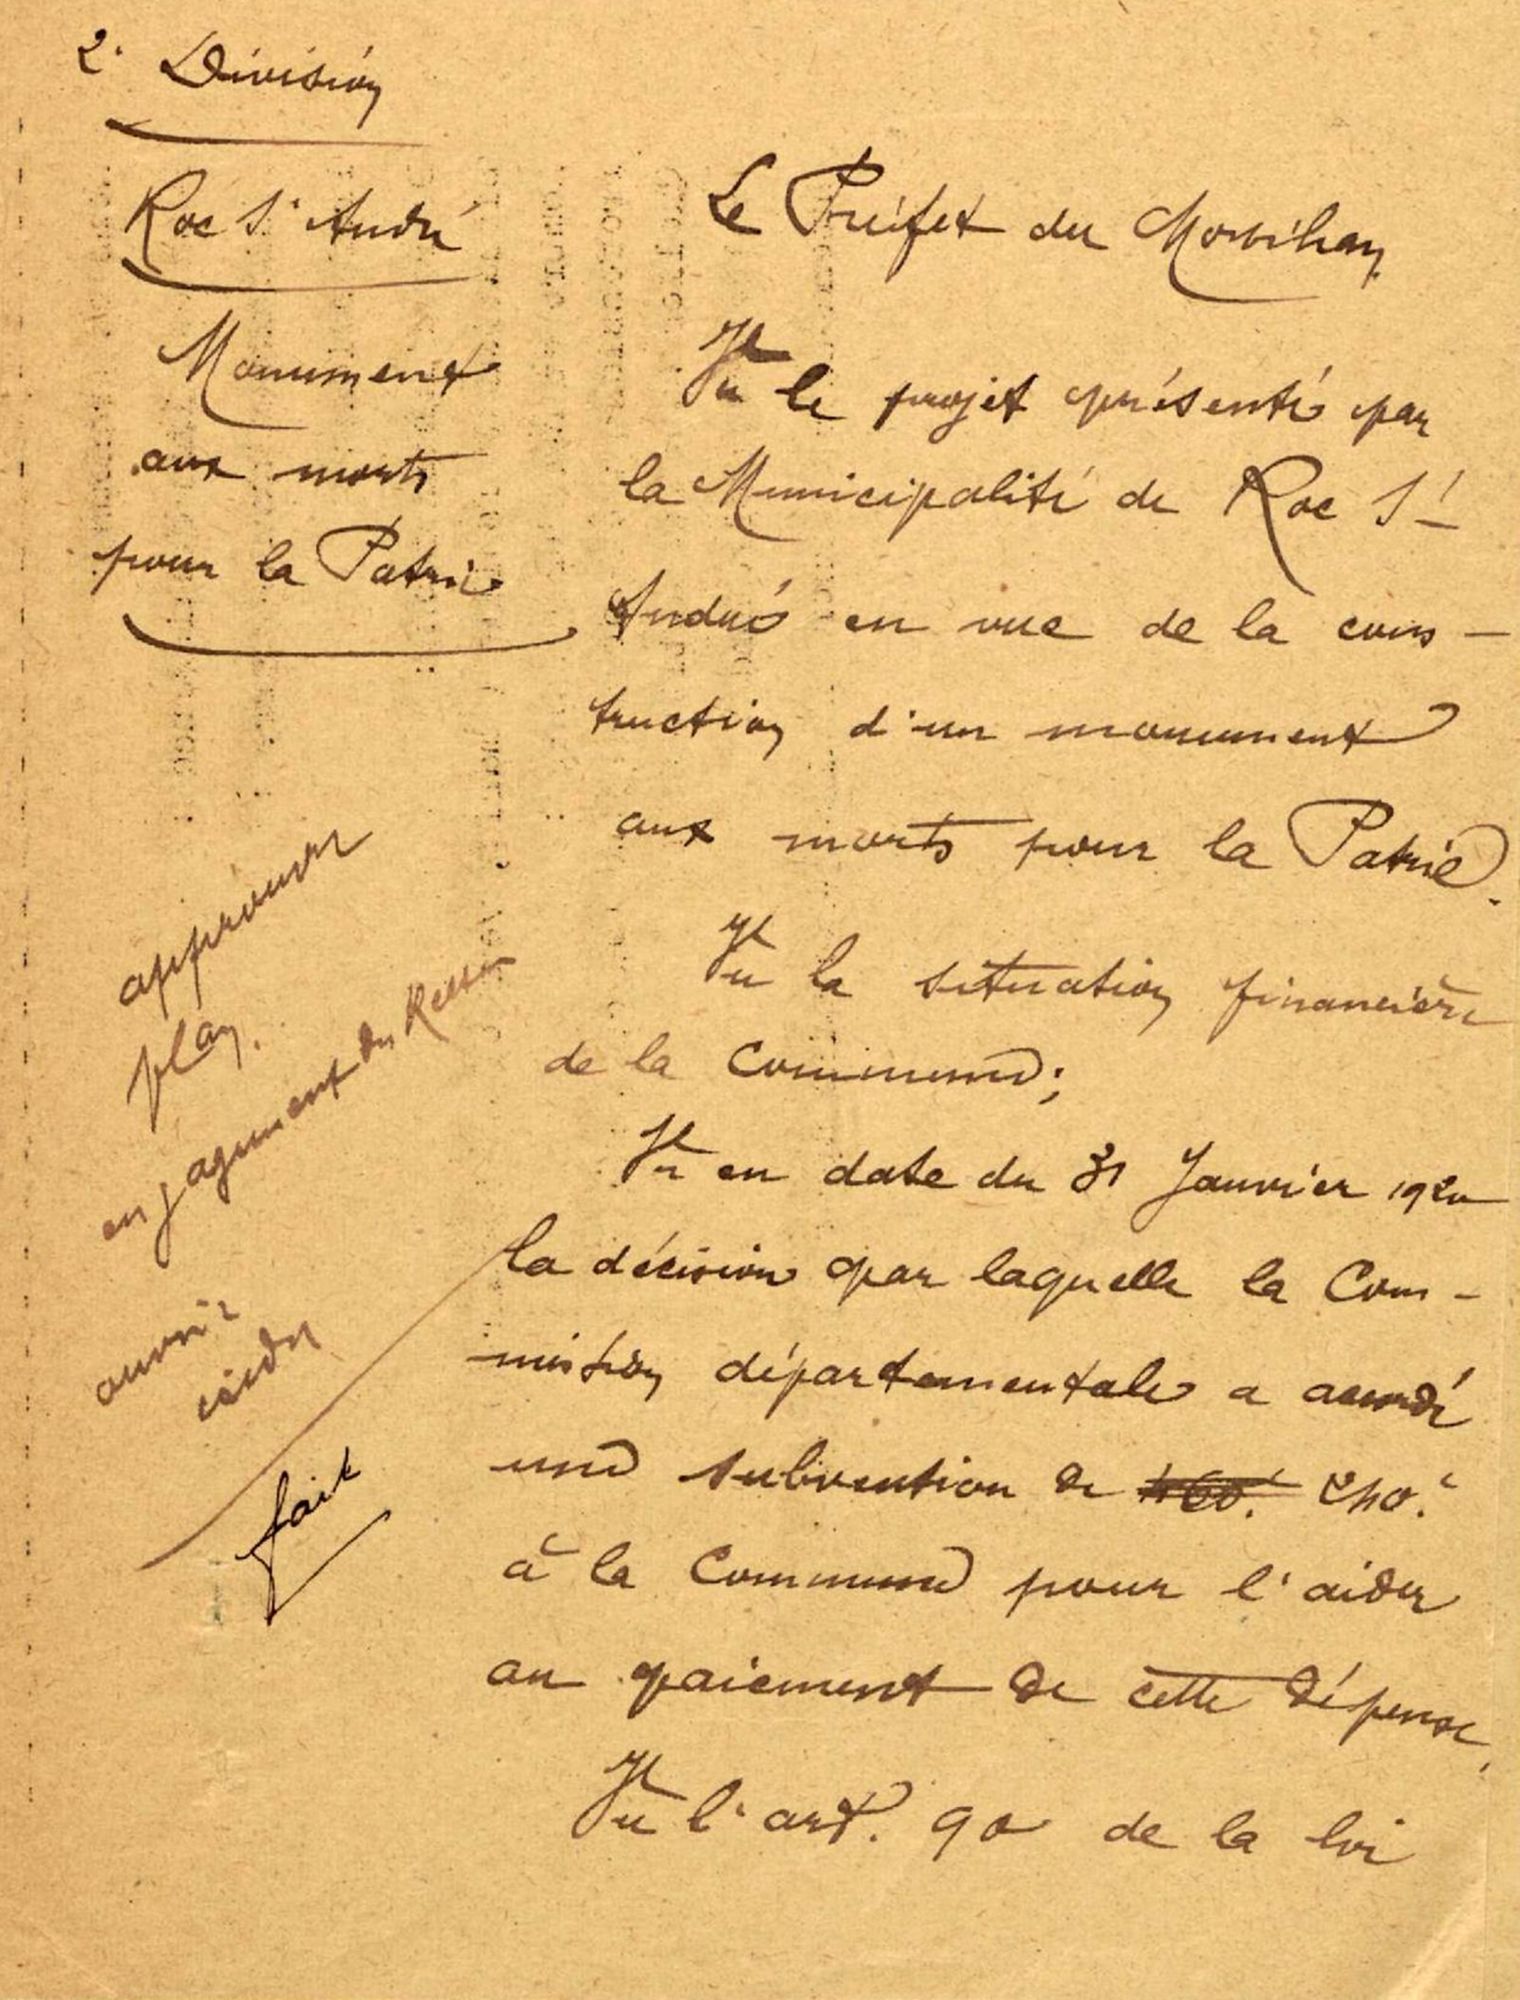 2e Division
Roc St André
Monument
aux morts
pour la Patrie
Le Préfet du Morbihan,
Vu le projet présenté par
la Municipalité de Roc St-
André en vue de la cons-
truction d'un monument
aux morts pour la Patrie.
Vu la situation financière
de la Commune;
Vu en date du 31 Janvier 1920
la décision par laquelle la Com-
mission départementale a accordé
une subvention de 240.f
à la Commune pour l'aider
au paiement de cette dépense.
Vu l'art. 90 de la loi
approuver
plan.
engagement du
ouvrir
crédit
fait